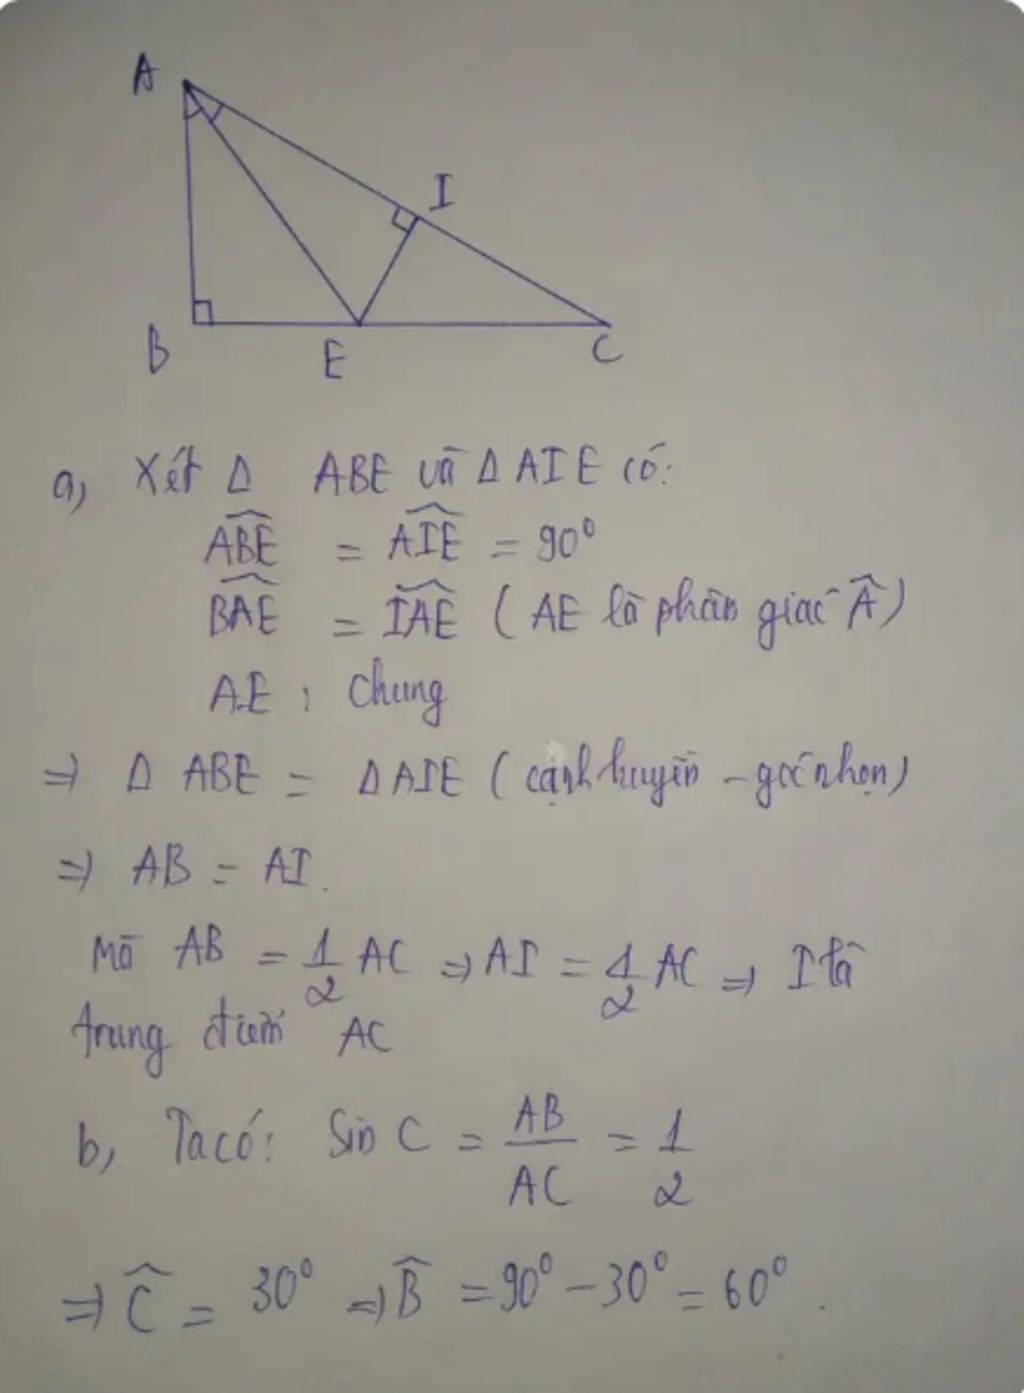 A
I
B
E
C
a, Xét Δ ABE và Δ AIE có:
\widehat{ABE} = \widehat{AIE} = 90⁰
\widehat{BAE} = \widehat{IAE} ( AE là phân giác \widehat{A} )
AE : Chung
⇒ Δ ABE = Δ AIE ( cạnh huyền - góc nhọn )
⇒ AB = AI.
Mà AB = 1/2 AC ⇒ AI = 1/2 AC ⇒ I là
trung điểm AC
b, Ta có: Sin C = AB/AC = 1/2
⇒ \widehat{C} = 30⁰ ⇒ \widehat{B} = 90⁰ - 30⁰ = 60⁰.